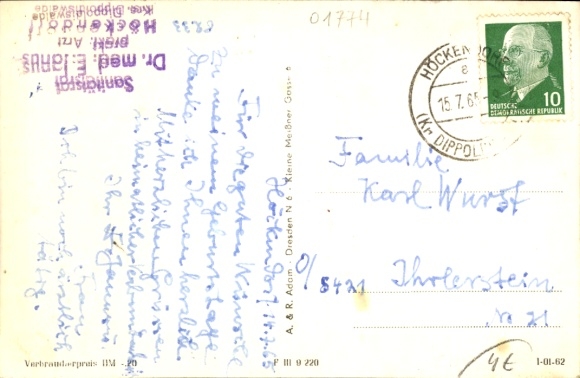 01774
Sanitätsrat
Dr. med. E. Janus
prakt. Arzt
Höckendorf
Kreis Dippoldiswalde
HÖCKENDORF
15.7.65
(Kr. DIPPOLDISW
DEUTSCHE
DEMOKRATISCHE REPUBLIK
10
Höckendorf, 14.7.65
Für die guten Wünsche
zu meinem Geburtstage
danke ich Ihnen herzlich
Mit herzlichen Grüssen
in heimatlicher
Ihr E. Janus
Ich bin noch ärztlich
tätig.
A. & R. Adam · Dresden N 6 · Kleine Meißner Gasse
Familie
Karl Wurst
5421 Ihrlerstein
No 21
4€
Verbraucherpreis DM -.20
F III 9 220
1-01-62